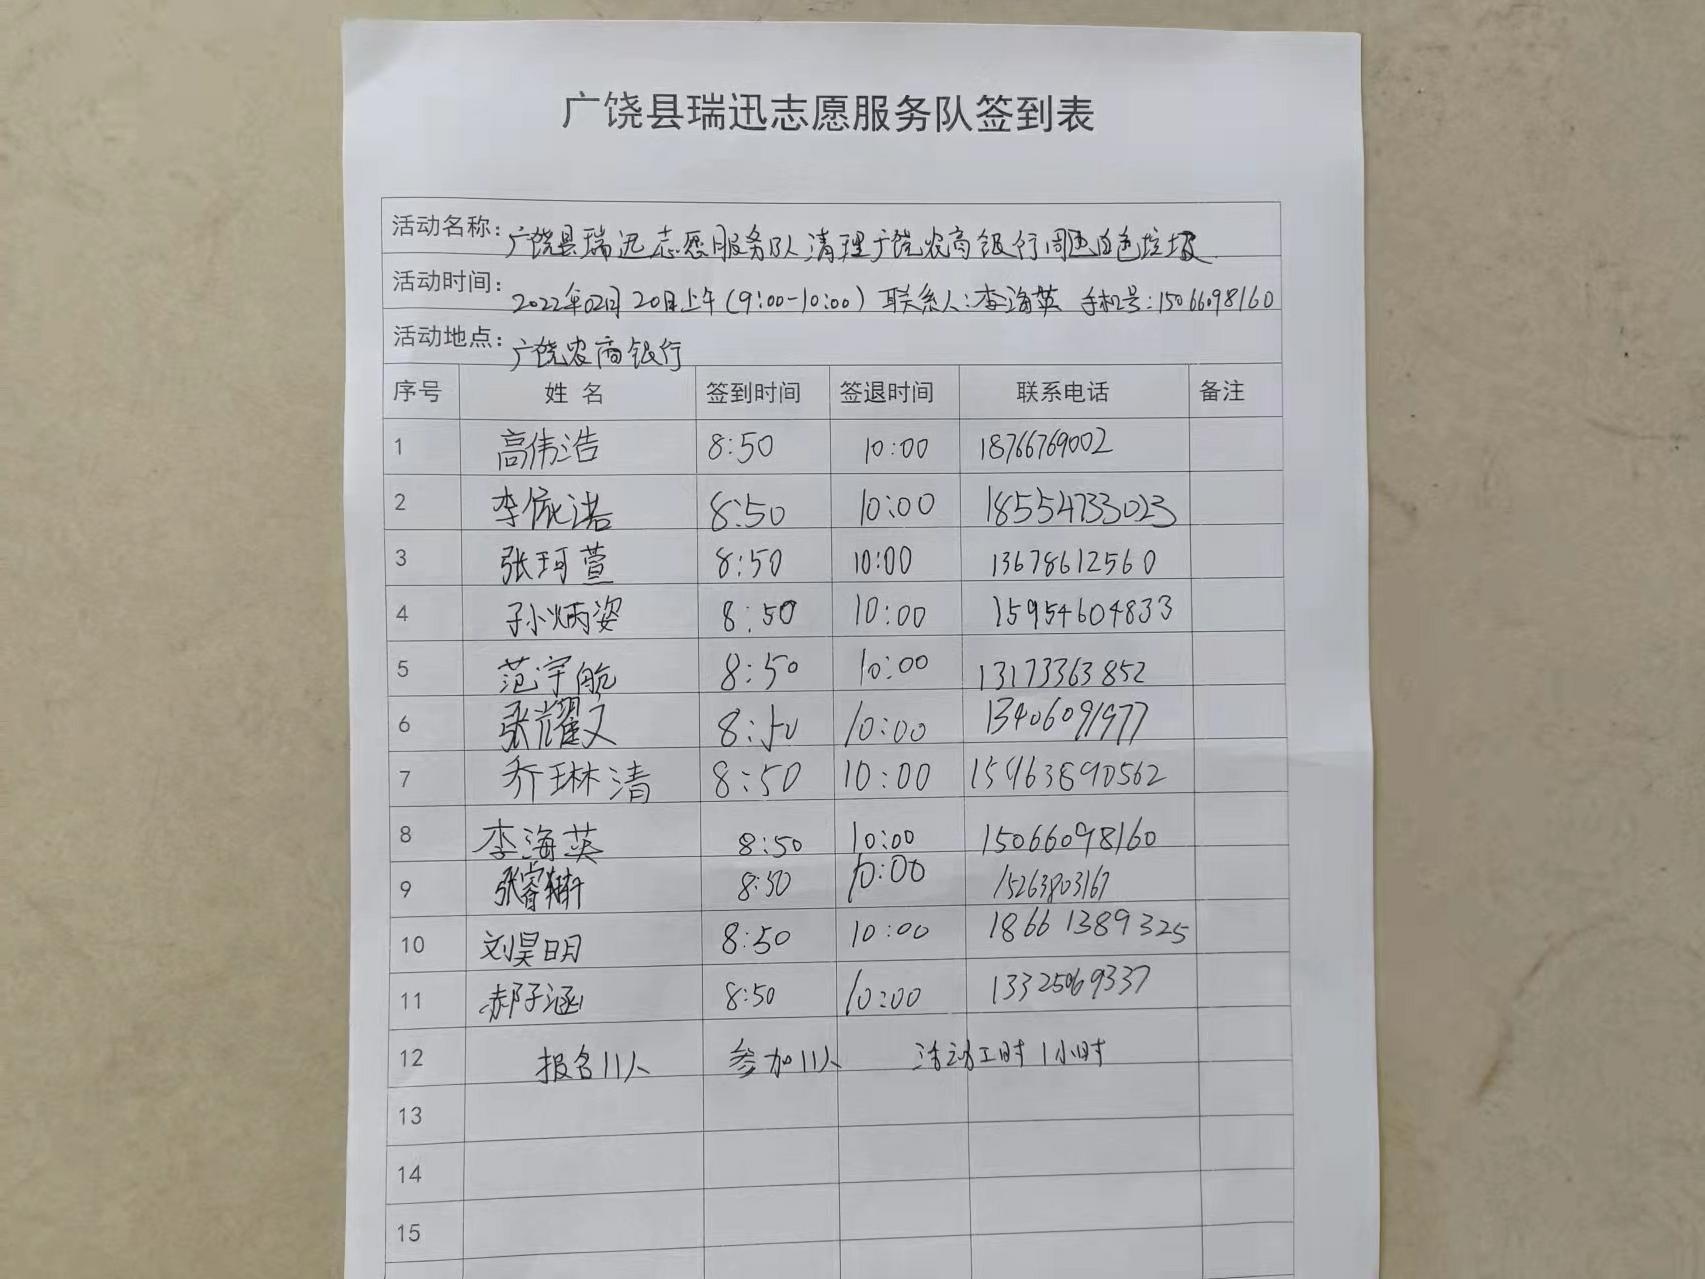 广饶县瑞迅志愿服务队签到表
活动名称：广饶县瑞迅志愿服务队清理广饶农商银行周边白色垃圾
活动时间：2022年02月20日上午(9:00-10:00) 联系人:李海英 手机号:15066098160
活动地点：广饶农商银行
序号 姓 名 签到时间 签退时间 联系电话 备注
1 高伟浩 8:50 10:00 18766769002
2 李依诺 8:50 10:00 18554733023
3 张珂萱 8:50 10:00 13678612560
4 孙炳姿 8:50 10:00 15954604833
5 范宇航 8:50 10:00 13173363852
6 张耀文 8:50 10:00 13406091977
7 乔琳清 8:50 10:00 15463890562
8 李海英 8:50 10:00 15066098160
9 张睿翔 8:50 10:00 15263803167
10 刘昊明 8:50 10:00 18661389325
11 郝子涵 8:50 10:00 13325069337
12 报名11人 参加11人 活动工时1小时
13
14
15